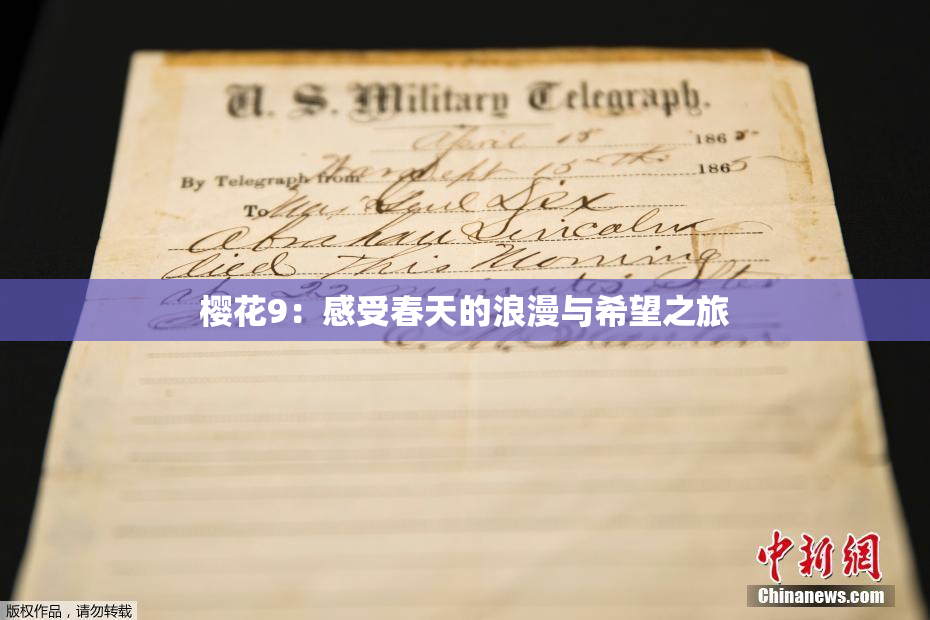 U. S. Military Telegraph.
April 15 1865
By Telegraph from War Dept 15th 1865
To Maj Genl Dix
Abraham Lincoln
died This Morning
at 22 minutes after
樱花9：感受春天的浪漫与希望之旅
E. M. Stanton
中新网
Chinanews.com
版权作品，请勿转载